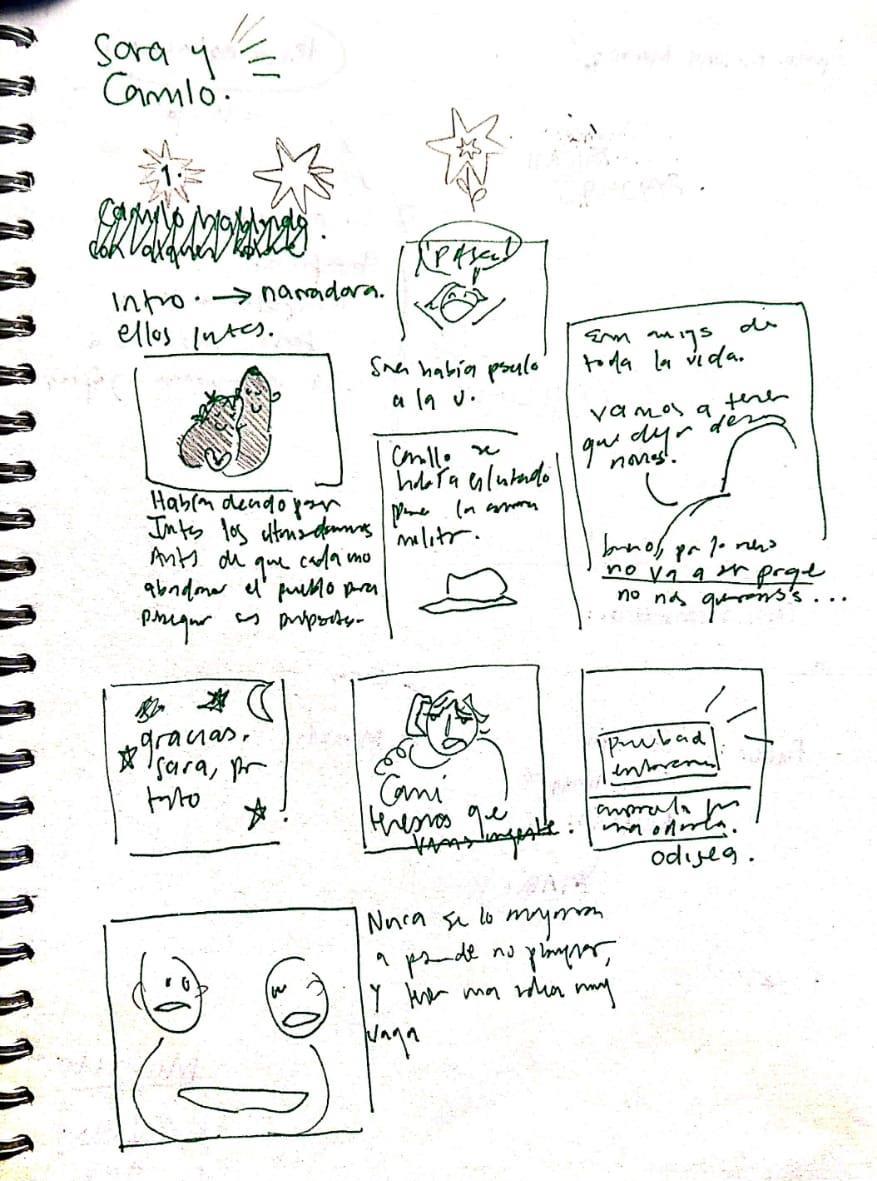 Sara y
Camilo.
1.
Camilo hablando
con alguien
Intro. → narradora.
ellos juntos.
¡PASÉ!
Sara había pasado
a la U.
Eran amigos de
toda la vida.
vamos a tener
que dejar de ser
novios.
bueno, por lo menos
no va a ser porque
no nos queramos...
Camilo se
había enlistado
para la
militar.
Habían decidido pasar
juntos los últimos
Antes de que cada uno
abandonara el pueblo para
perseguir sus propósitos.
gracias,
Sara, por
tanto
Cami
tenemos que
vernos urgente:
Prueba de
embarazo
una odisea.
odisea.
Nunca se lo
a pesar de no planear,
y tener una idea muy
vaga